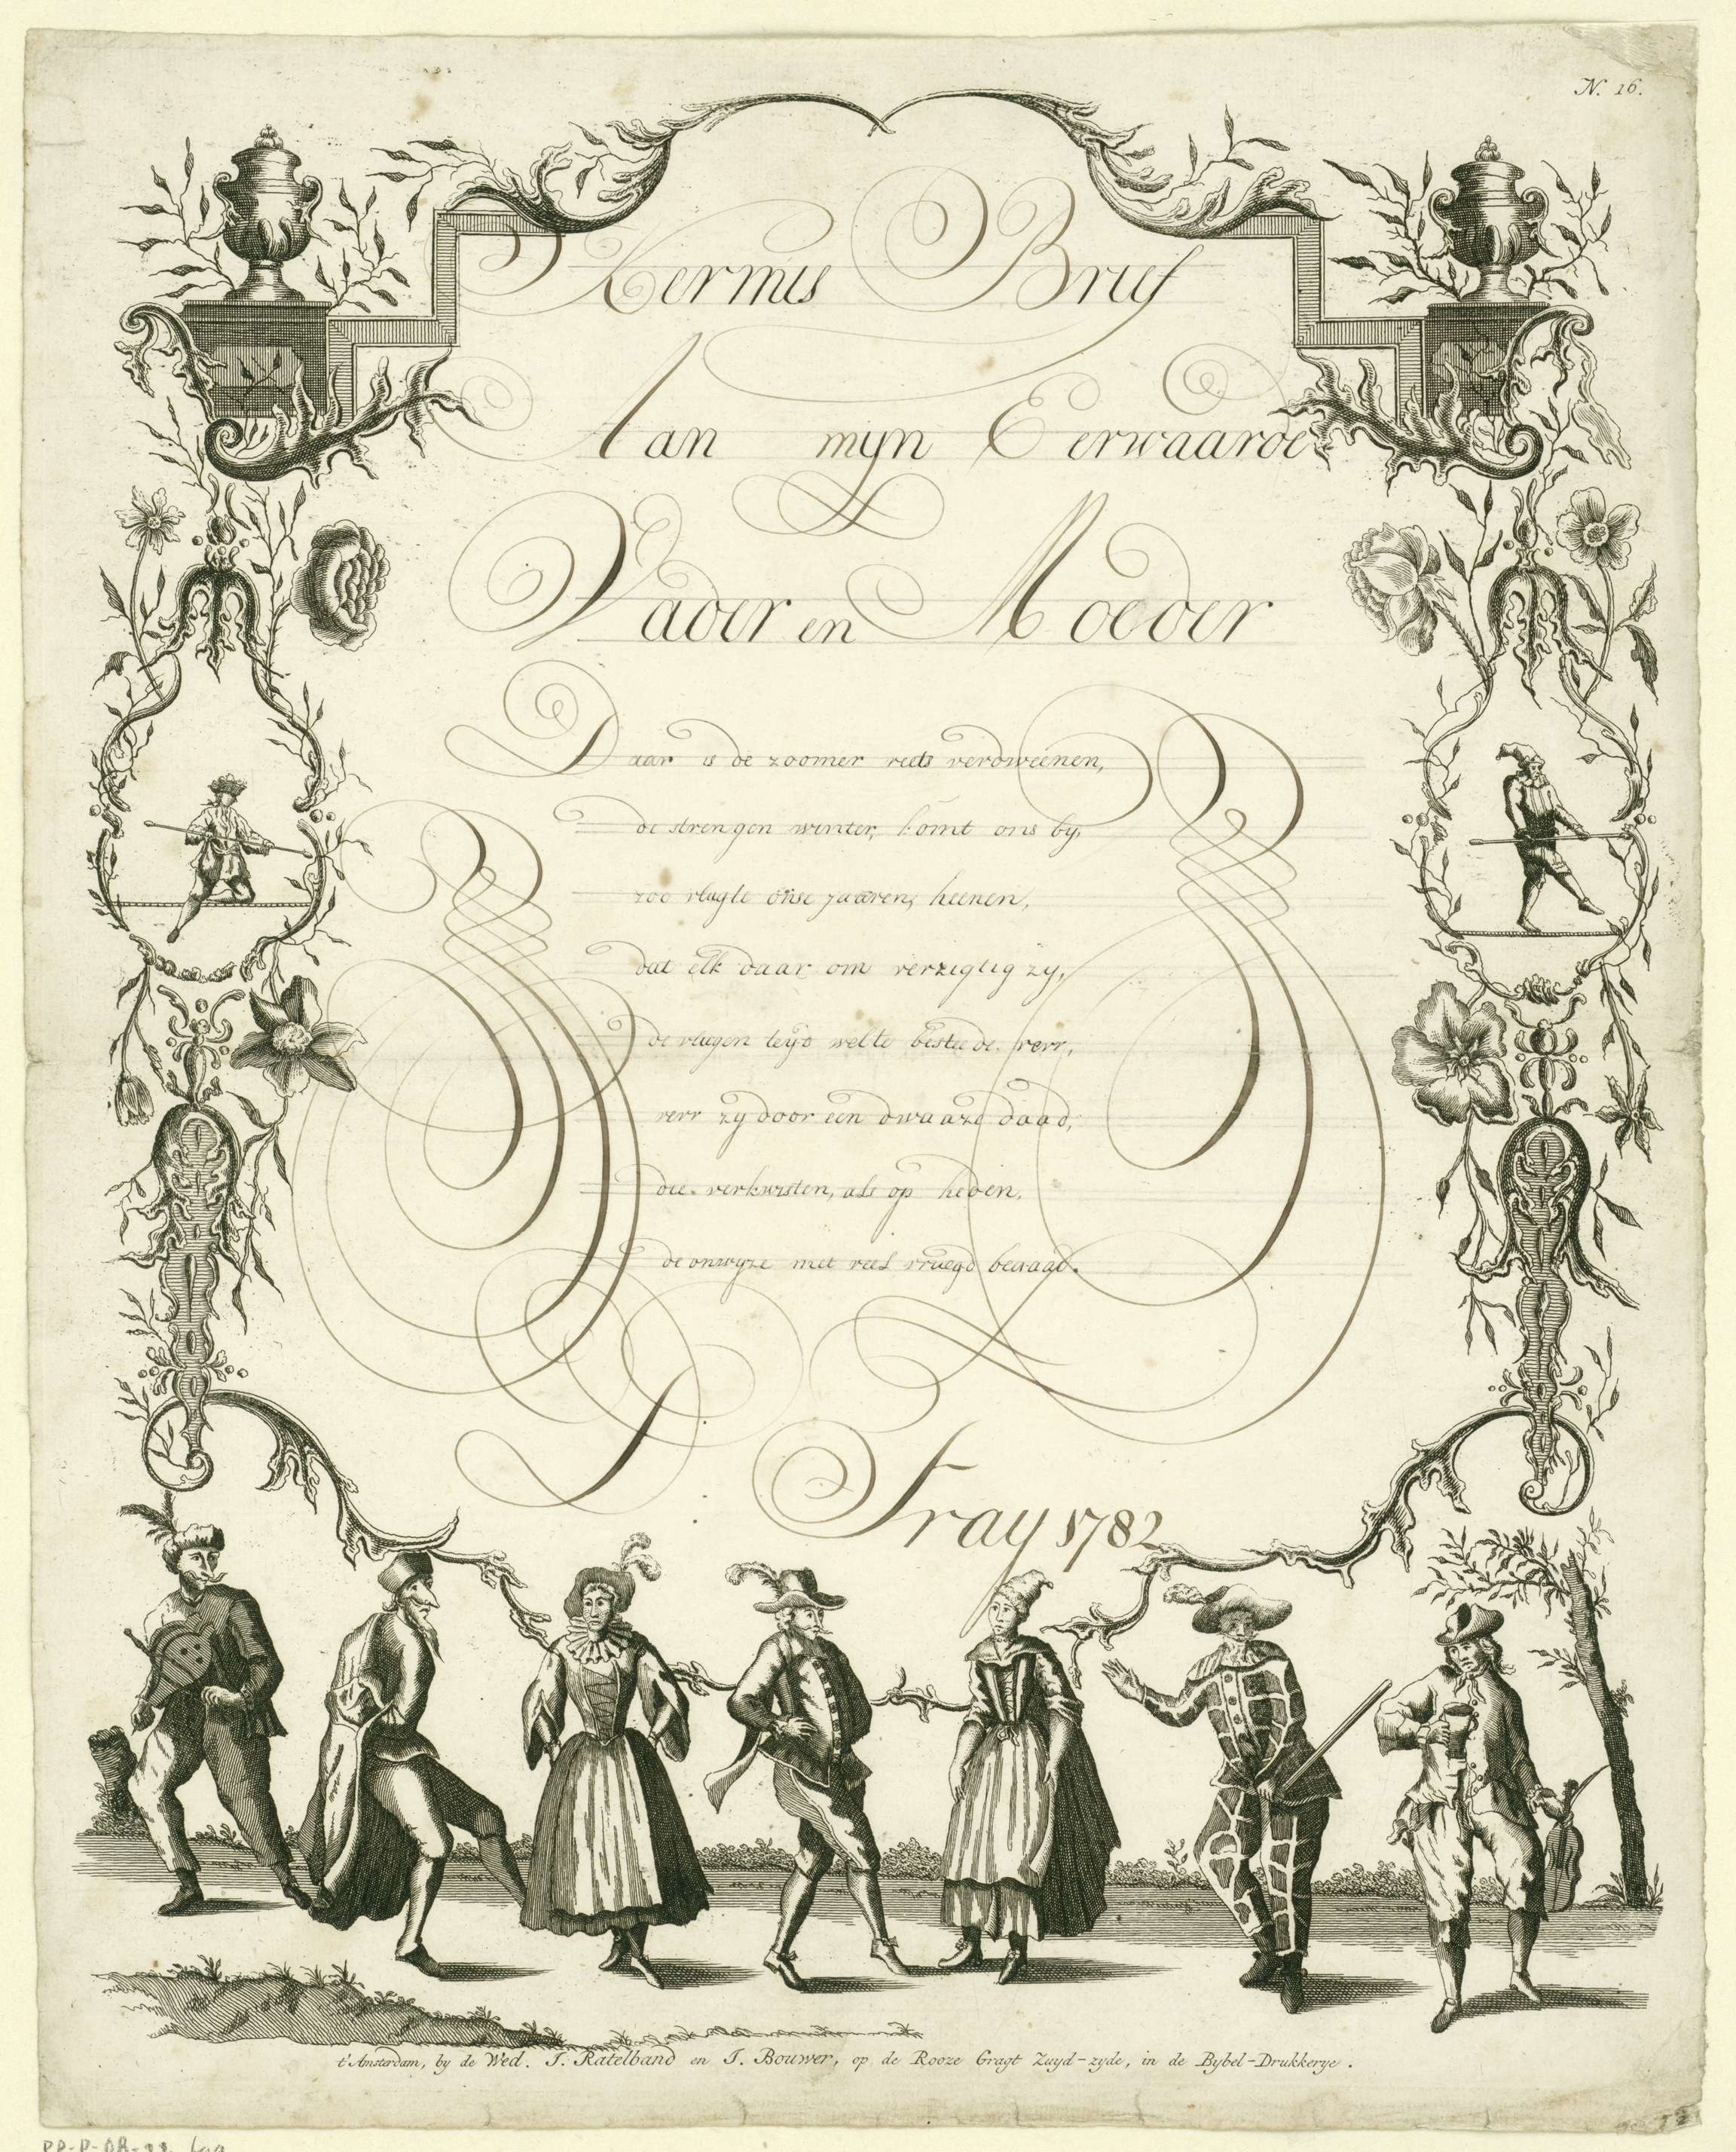 N. 16.
Kermis Brief
Aan mijn Eerwaarde
Vader en Moeder
Daar is de zoomer reets verdweenen,
de strengen winter, komt ons by,
zoo vlugte onse jaaren, heenen,
dat elk daar om verzigtig zy,
de vlugen teyd wel te bestede. verr,
verr zy door een dwaaze daad,
die verkwisten, als op heden,
de onwyze met veel vruegd
Fray 1782
t'Amsterdam, by de Wed. J. Ratelband en J. Bouwer, op de Rooze Gragt Zuyd-zyde, in de Bybel-Drukkerye.